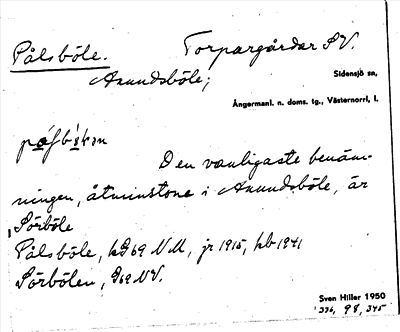 Pålsböle. Torpargårdar SV.
Anundsböle; Sidensjö sn,
Ångermanl. n. doms. tg., Västernorrl. l.
Den vanligaste benäm-
ningen, åtminstone i Anundsböle, är
Sörböle
Pålsböle, kG69 NM, jr 1915, hb 1941
Sörbölen, G69 NV.
Sven Hiller 1950
336, 98, 345